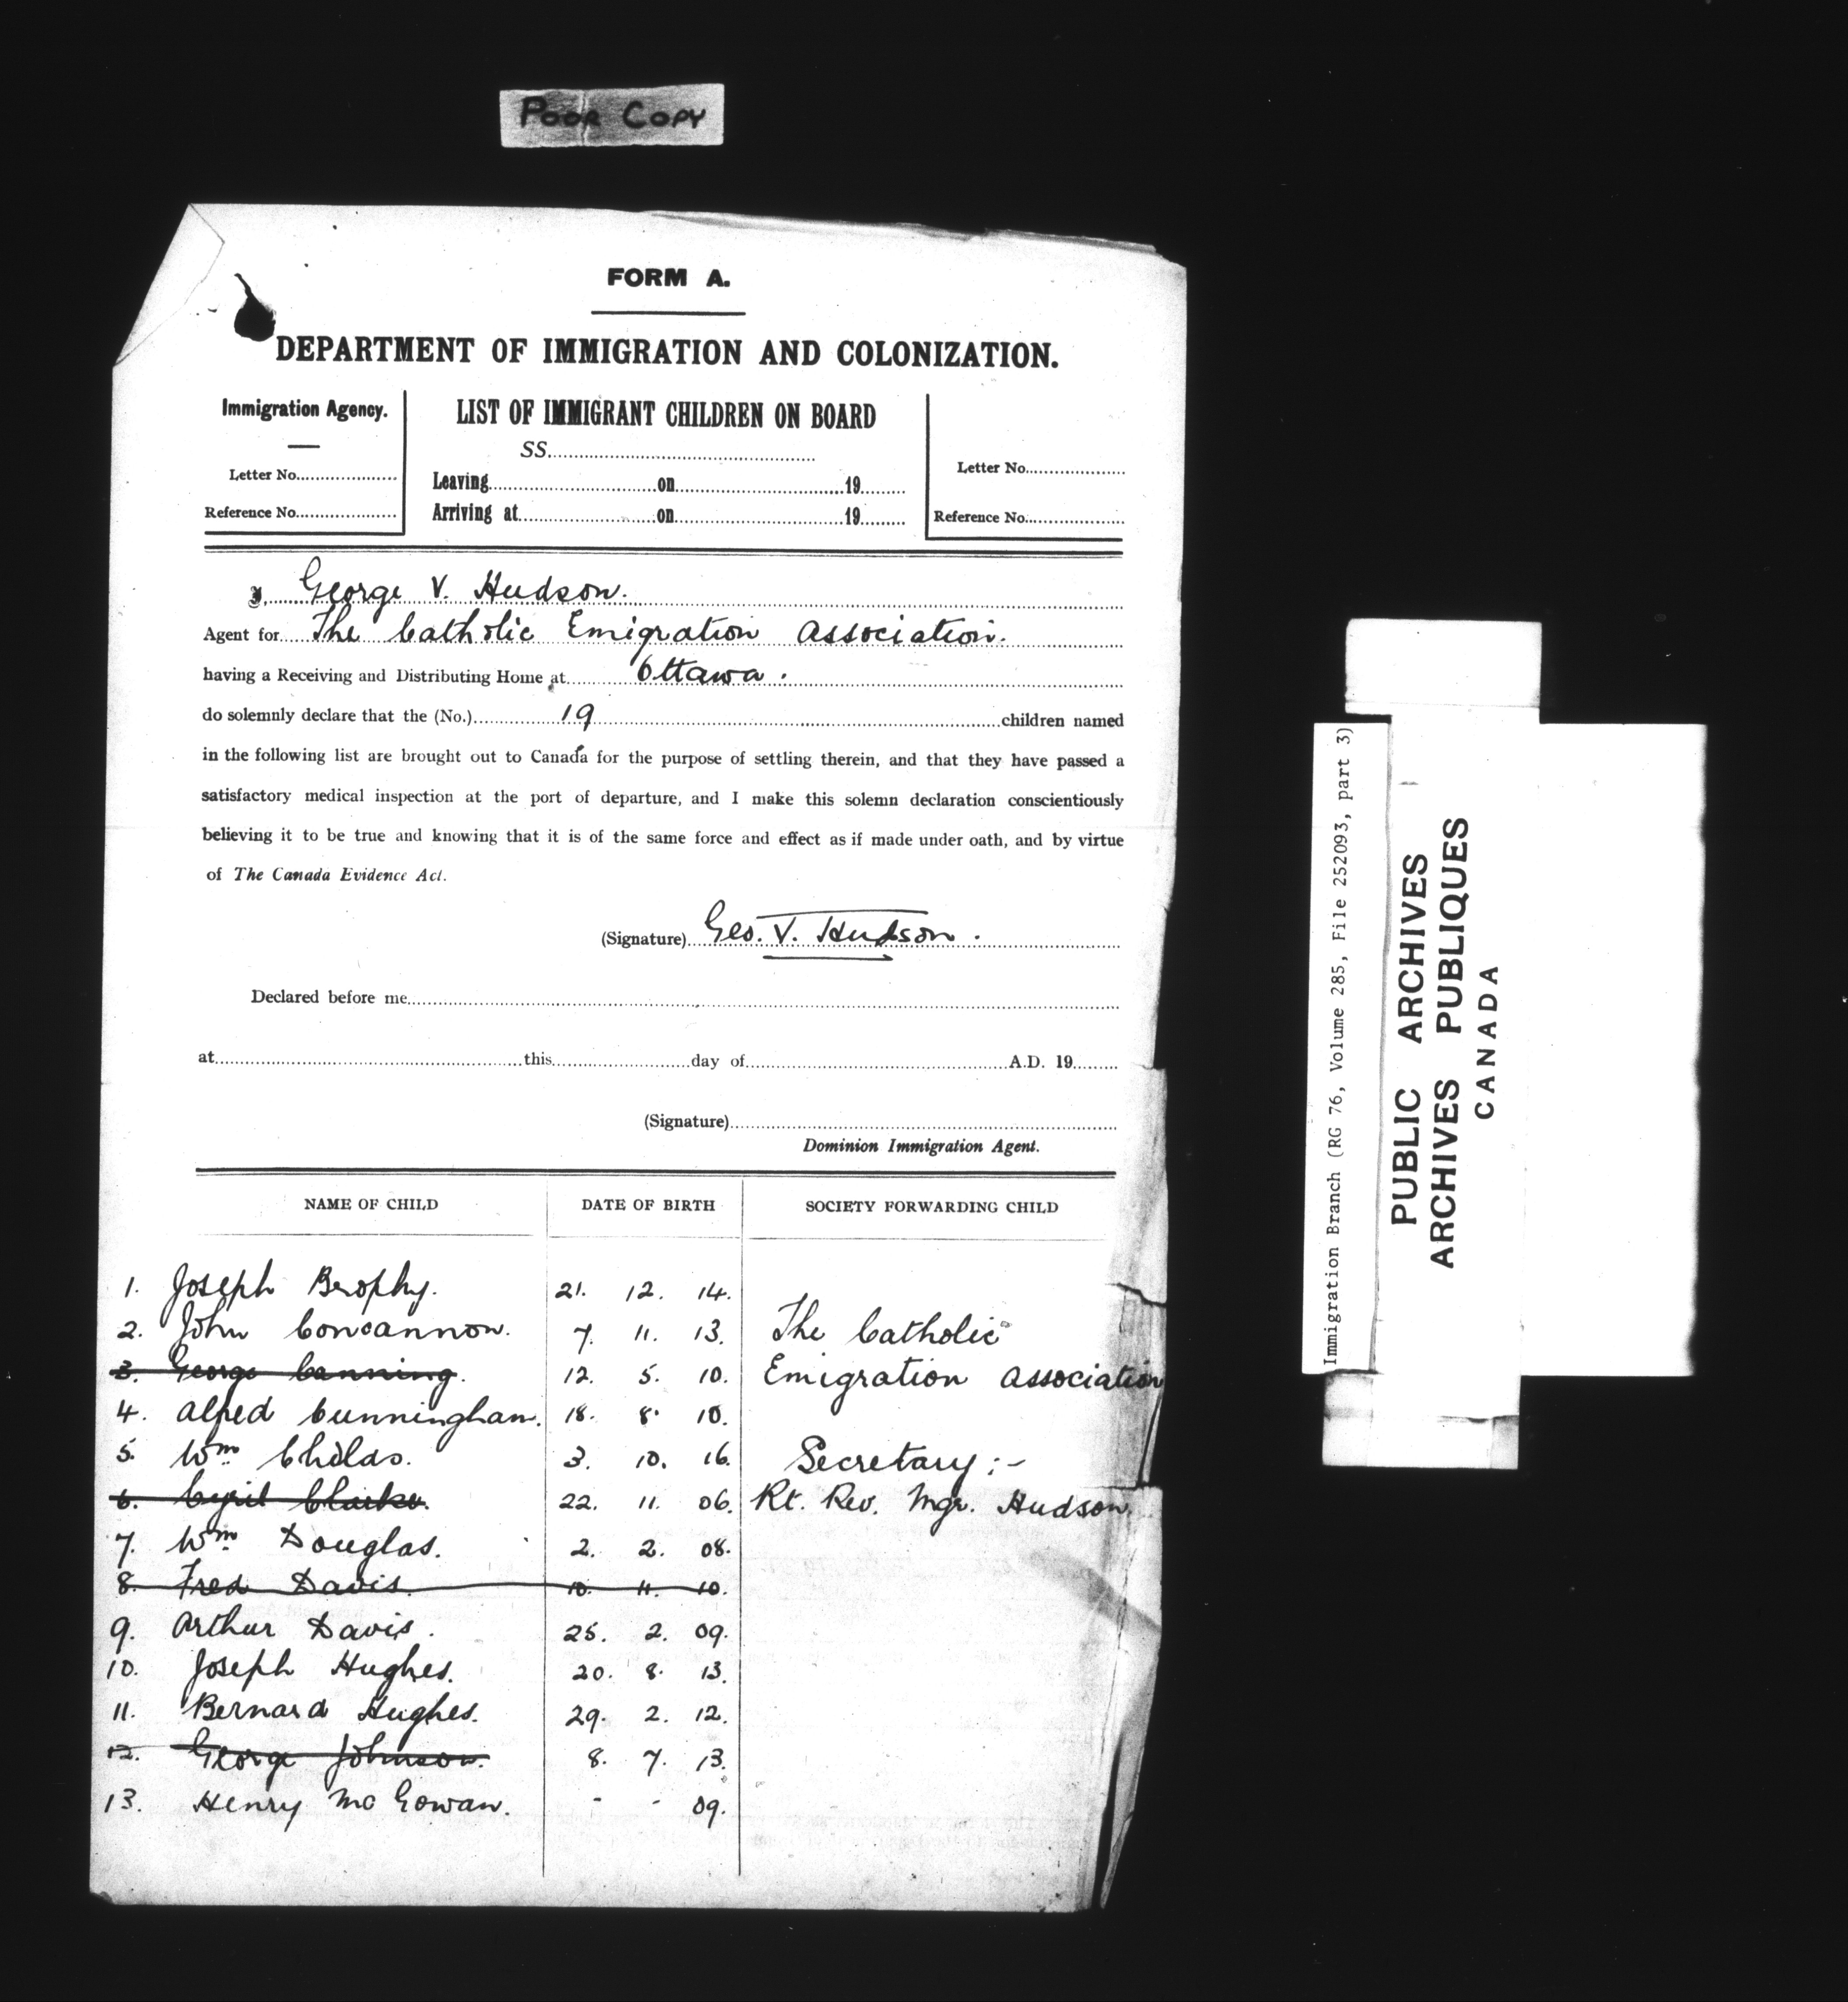 POOR COPY
FORM A.
DEPARTMENT OF IMMIGRATION AND COLONIZATION.
Immigration Agency.
Letter No.
Reference No.
LIST OF IMMIGRANT CHILDREN ON BOARD
SS.
Leaving on 19
Arriving at on 19
Letter No.
Reference No.
I, George V. Hudson.
Agent for The Catholic Emigration Association.
having a Receiving and Distributing Home at Ottawa.
do solemnly declare that the (No.) 19 children named
in the following list are brought out to Canada for the purpose of settling therein, and that they have passed a
satisfactory medical inspection at the port of departure, and I make this solemn declaration conscientiously
believing it to be true and knowing that it is of the same force and effect as if made under oath, and by virtue
of The Canada Evidence Act.
(Signature) Geo. V. Hudson.
Declared before me
at this day of A.D. 19
(Signature)
Dominion Immigration Agent.
NAME OF CHILD DATE OF BIRTH SOCIETY FORWARDING CHILD
1. Joseph Brophy. 21. 12. 14.
2. John Concannon. 7. 11. 13. The Catholic
3. George Canning. 12. 5. 10. Emigration Association
4. Alfred Cunningham. 18. 8. 10.
5. Wm Childs. 3. 10. 16. Secretary :-
6. Cyril Clarke. 22. 11. 06. Rt. Rev. Mgr. Hudson.
7. Wm Douglas. 2. 2. 08.
8. Fred Davis. 10. 11. 10.
9. Arthur Davis. 25. 2. 09.
10. Joseph Hughes. 20. 8. 13.
11. Bernard Hughes. 29. 2. 12.
12. George Johnson. 8. 7. 13.
13. Henry McGowan. - - 09.
Immigration Branch (RG 76, Volume 285, File 252093, part 3)
PUBLIC ARCHIVES
ARCHIVES PUBLIQUES
CANADA